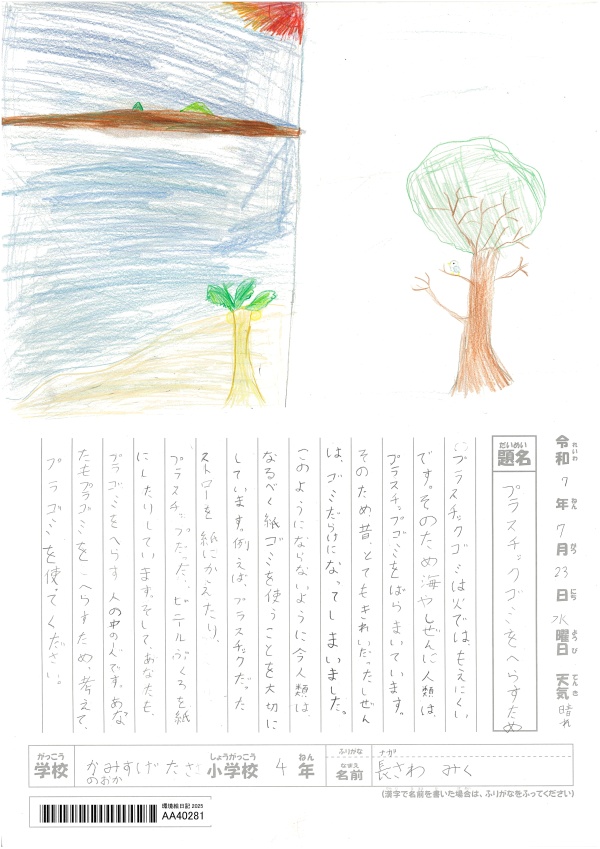 令和7年7月23日水曜日 天気晴れ
題名 プラスチックゴミをへらすため
プラスチックゴミは火では、もえにくい
です。そのため海やしぜんに人類は、
プラスチップゴミをばらまいています。
そのため昔、とてもきれいだったしぜん
は、ゴミだらけになってしまいました。
このようにならないように今人類は、
なるべく紙ゴミを使うことを大切に
しています。例えば、プラスチックだった
ストローを紙にかえたり、
プラスチップだった、ビニールぶくろを紙
にしたりしています。そして、あなたも、
プラゴミをへらす人の中の人です。あな
たもプラゴミをへらすため、考えて、
プラゴミを使ってください。
がっこう 学校 かみすげたさ
のおか
しょうがっこう 小学校 4 ねん 年
ふりがな ナガ
なまえ 名前 長さわ みく
(漢字で名前を書いた場合は、ふりがなをふってください)
環境絵日記 2025
AA40281